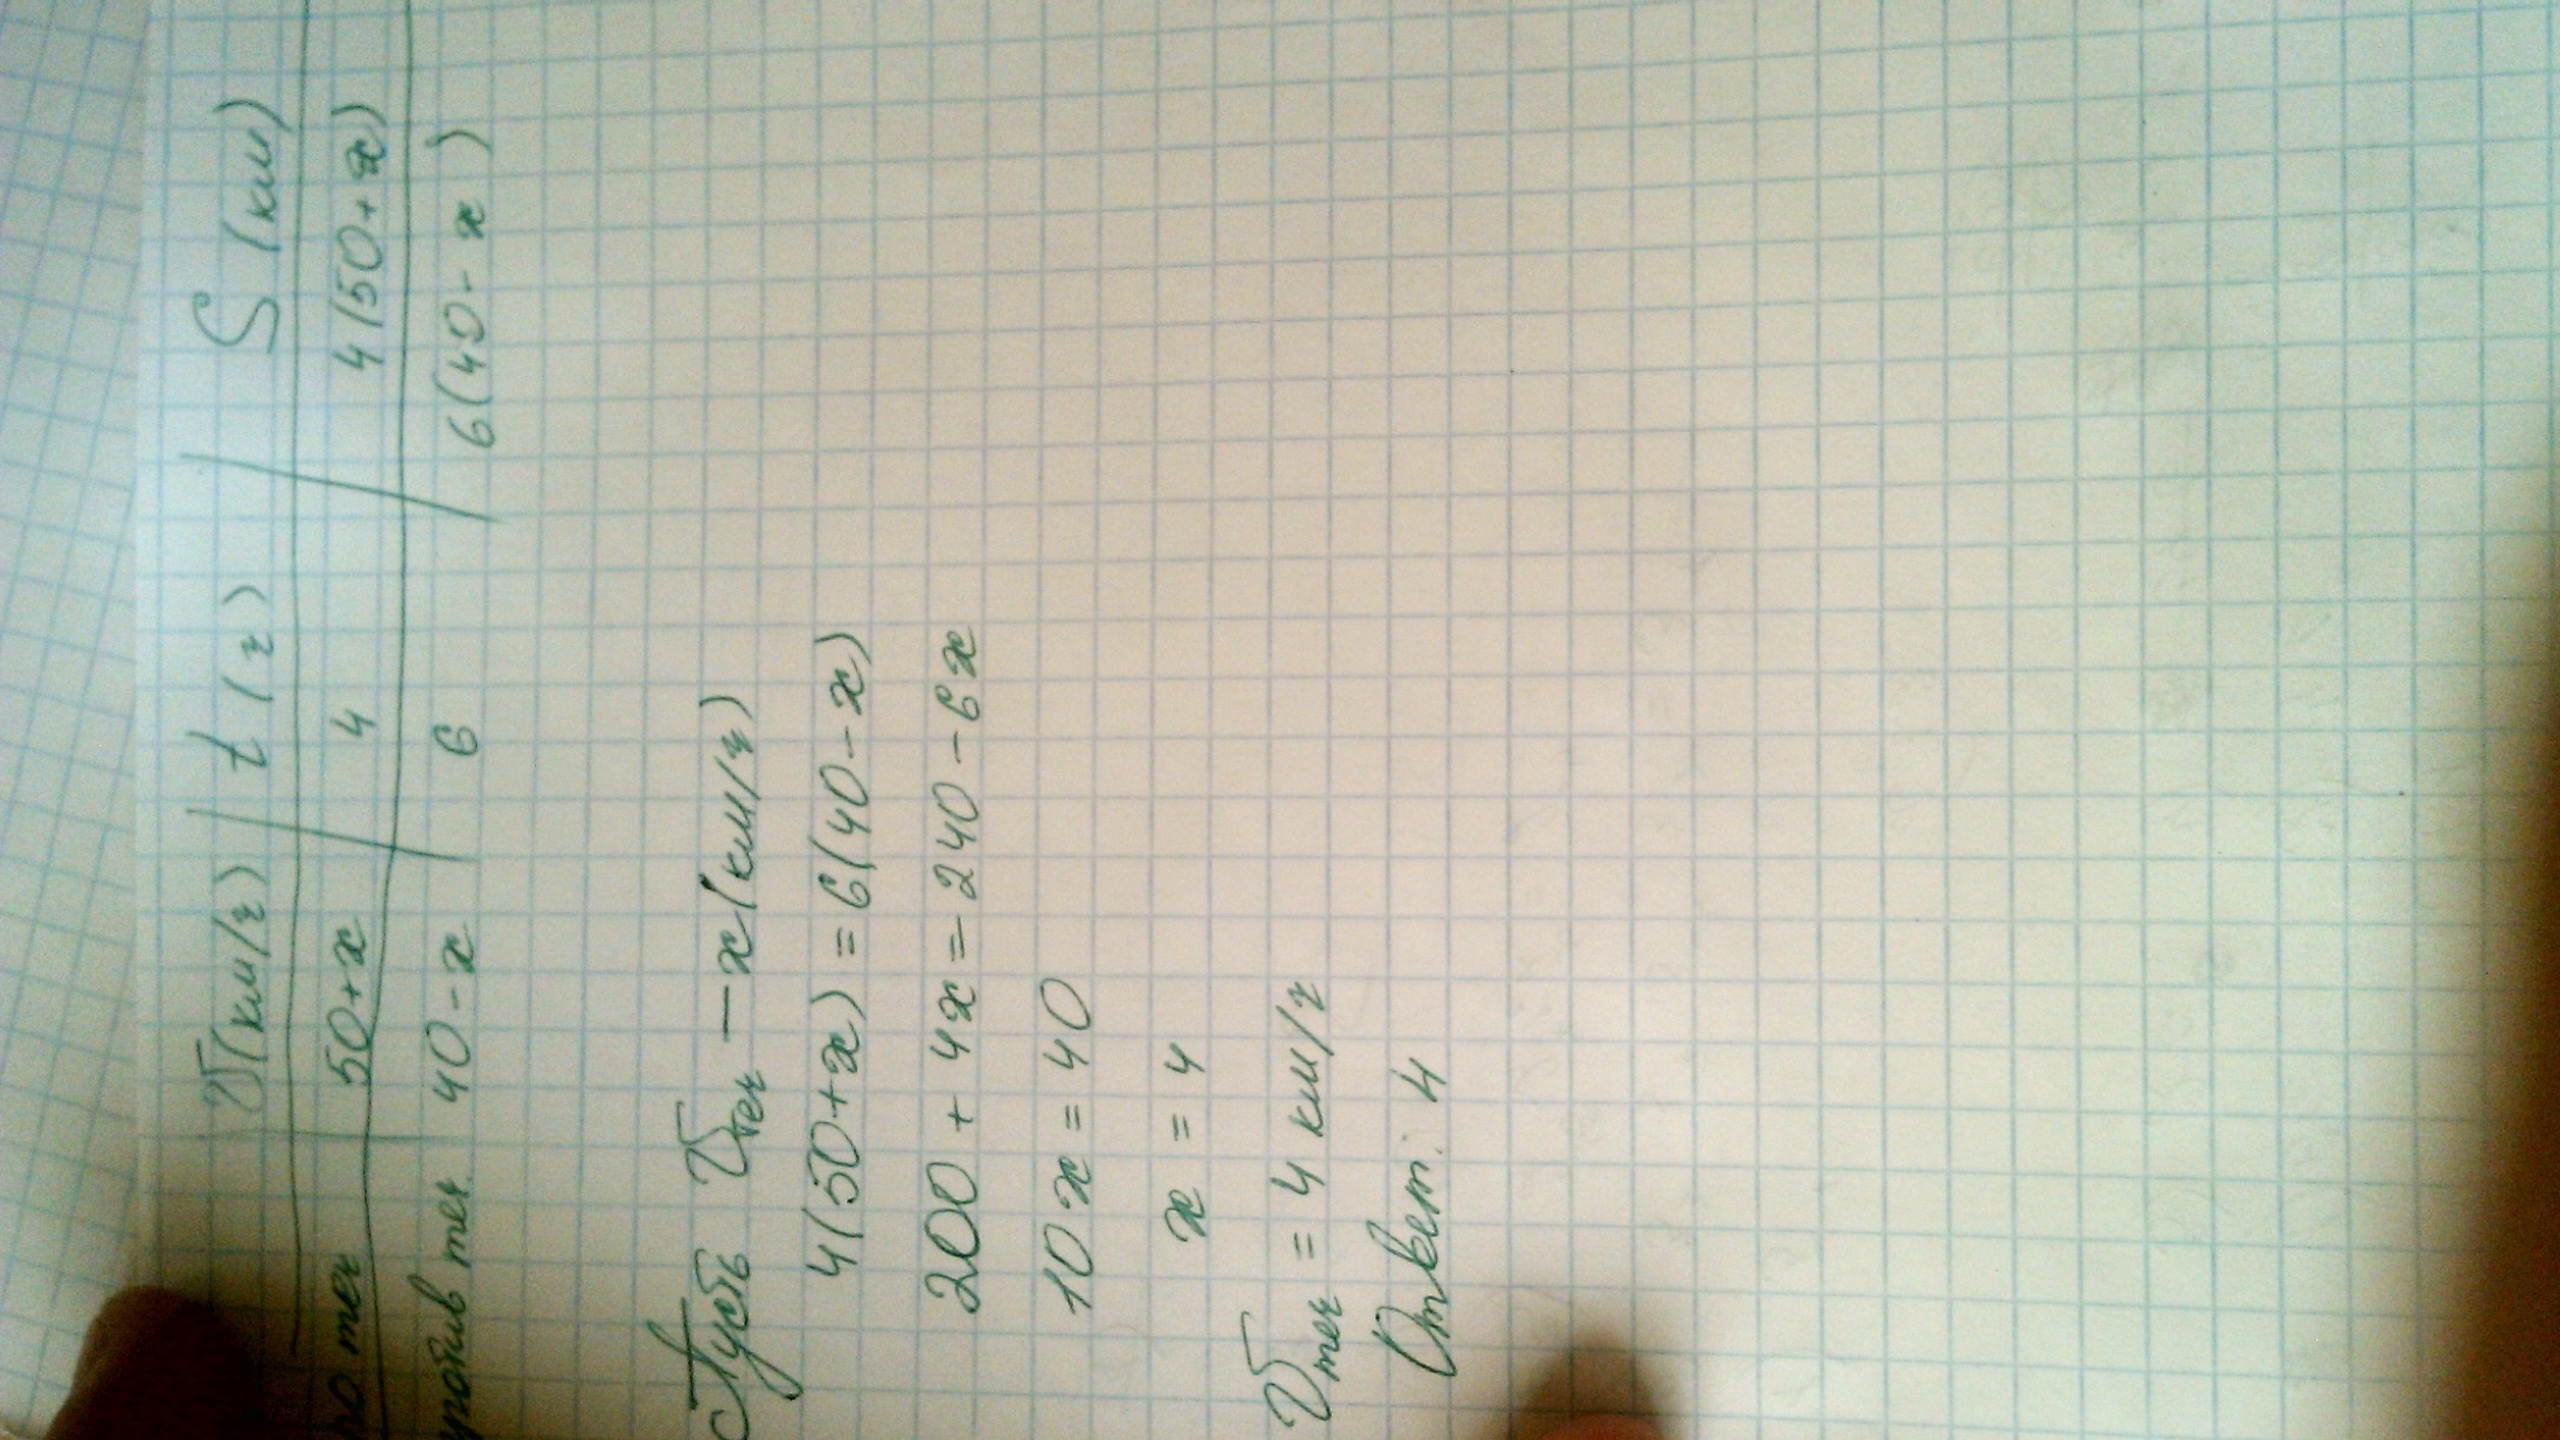 V(км/ч) | t (ч) | S (км)
по теч 50+x 4 4(50+x)
против теч. 40-x 6 6(40-x)
Пусть Vтеч – x(км/ч)
4(50+x) = 6(40-x)
200 + 4x = 240 - 6x
10x = 40
x = 4
Vтеч = 4 км/ч
Ответ: 4